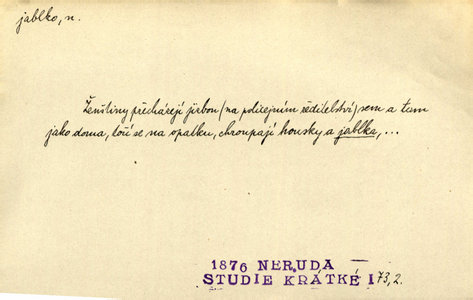 jablko, n.
Ženštiny přecházejí jizbou (na policejním ředitelství) sem a tam
jako doma, točí se na opatku, chroupají housky a jablka, ...
1876 NERUDA
STUDIE KRÁTKÉ I 73,2.